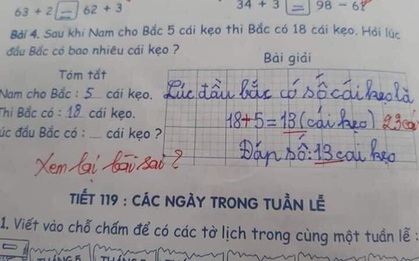 63 + 2 = 62 + 3
34 + 3 = 98 - 68
Bài 4. Sau khi Nam cho Bắc 5 cái kẹo thì Bắc có 18 cái kẹo. Hỏi lúc
đầu Bắc có bao nhiêu cái kẹo ?
Tóm tắt
Bài giải
Nam cho Bắc : 5 cái kẹo.
Thì Bắc có : 18 cái kẹo.
Lúc đầu Bắc có : ... cái kẹo ?
Lúc đầu bắc có số cái kẹo là
18+5=13 (cái kẹo) 23 cái
Đáp số: 13 cái kẹo
Xem lại bài sai ?
TIẾT 119 : CÁC NGÀY TRONG TUẦN LỄ
1. Viết vào chỗ chấm để có các tờ lịch trong cùng một tuần lễ :
THÁNG